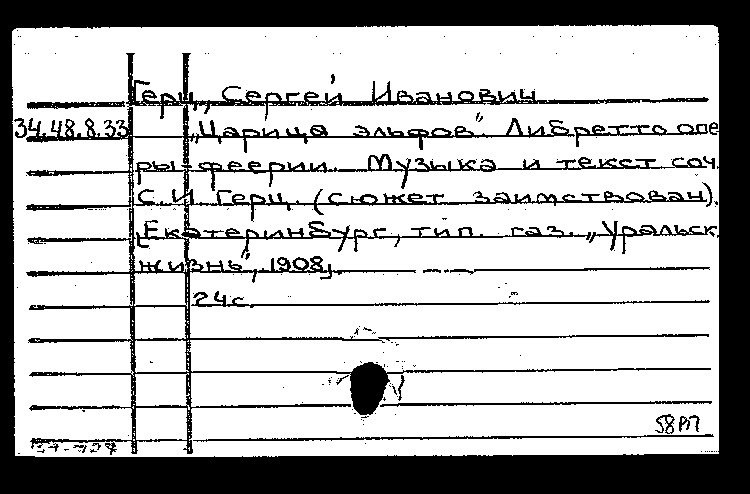 Герц, Сергей Иванович
34.48.8.33 „Царица эльфов". Либретто опе
ры феерии. Музыка и текст соч.
С.И. Герц. (сюжет заимствован).
[Екатеринбург, тип. газ. „Уральск.
жизнь", 1908].
24 с.
58РП